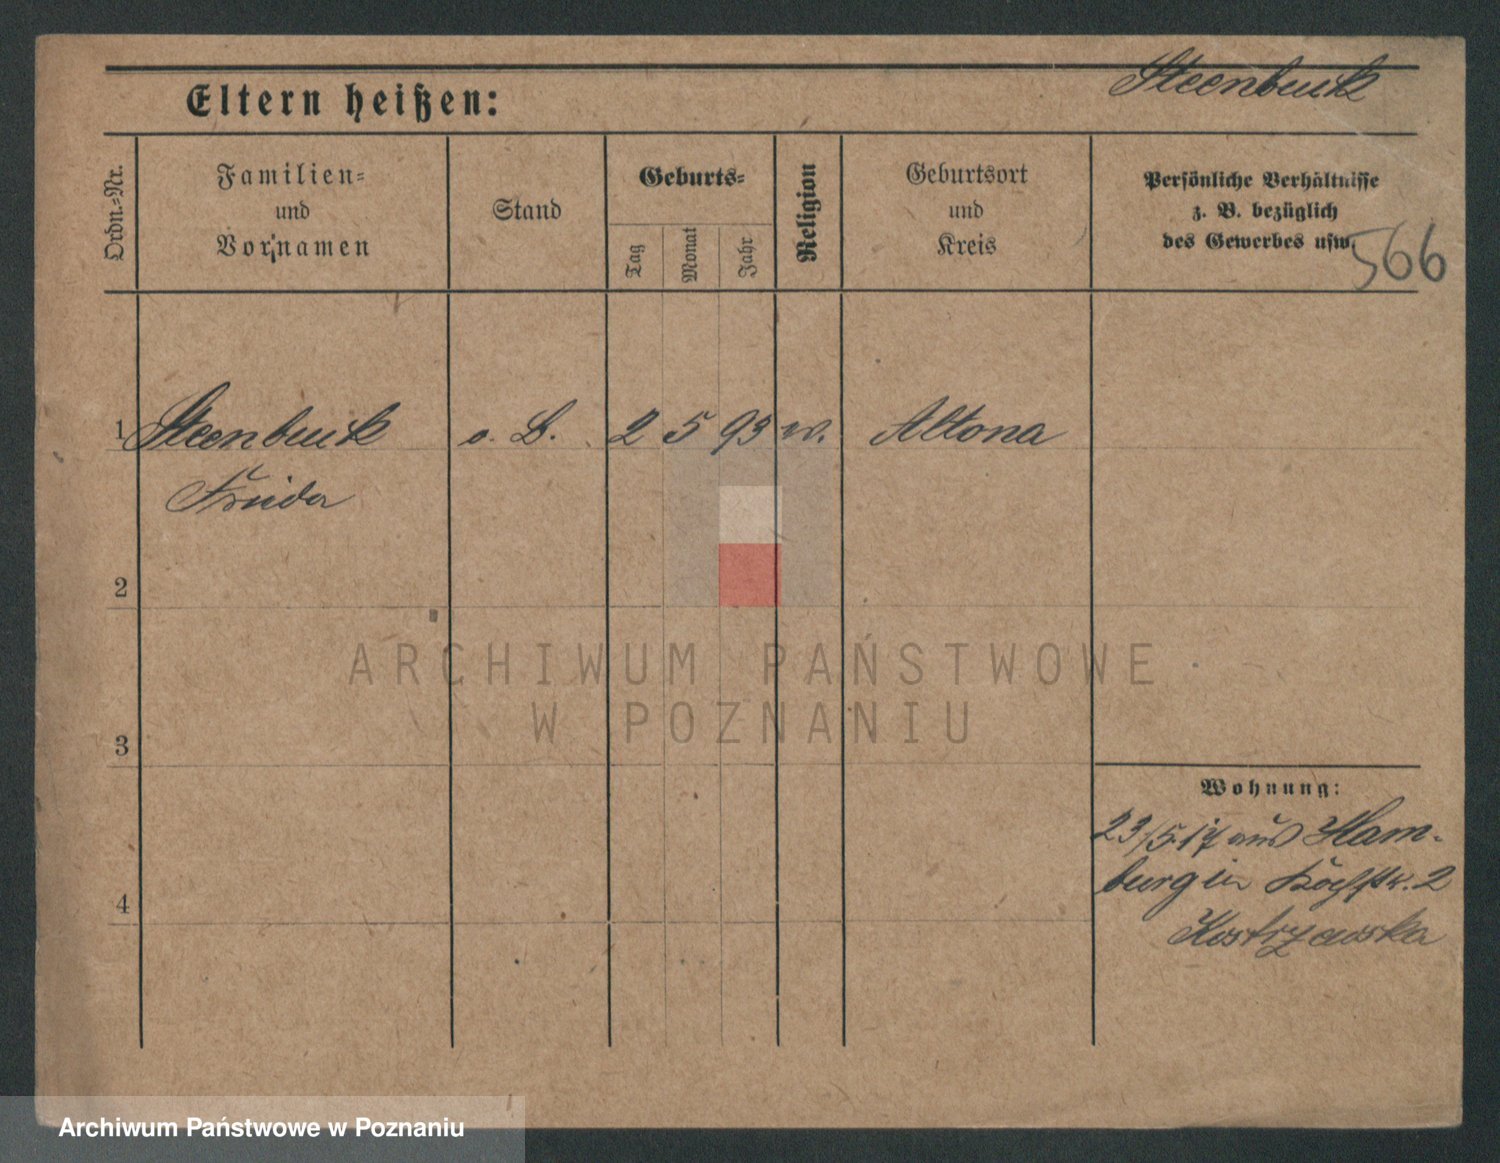 Steenbuck
Eltern heißen:
Ordn.-Nr.
Familien-
und
Vornamen
Stand
Geburts-
Tag
Monat
Jahr
Religion
Geburtsort
und
Kreis
Persönliche Verhältnisse
z. B. bezüglich
des Gewerbes usw.
566
1 Steenbuck o. B. 2 5 93 Altona
Frieda
2
ARCHIWUM PAŃSTWOWE
W POZNANIU
3
Wohnung:
23/5.17 aus Ham-
burg in 2
4
Kostrzewska
Archiwum Państwowe w Poznaniu